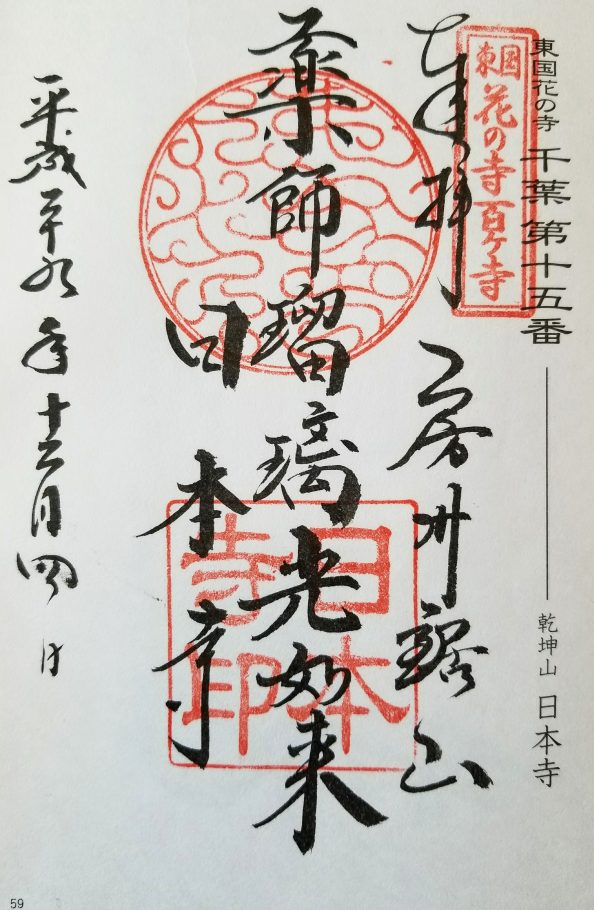 東国花の寺 千葉第十五番 ── 乾坤山 日本寺
東国花の寺百ヶ寺
奉拝 房州鋸山
薬師瑠璃光如来
日本寺
日本寺印
平成二十九年十二月四日
59